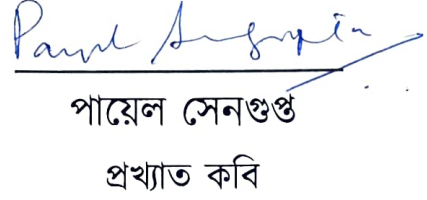 Payel Sengupta
পায়েল সেনগুপ্ত
প্রখ্যাত কবি